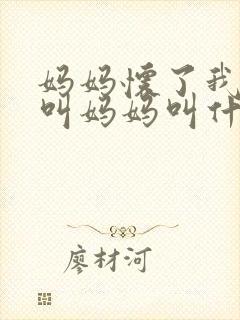 妈妈怀了我
叫妈妈叫什
廖材河